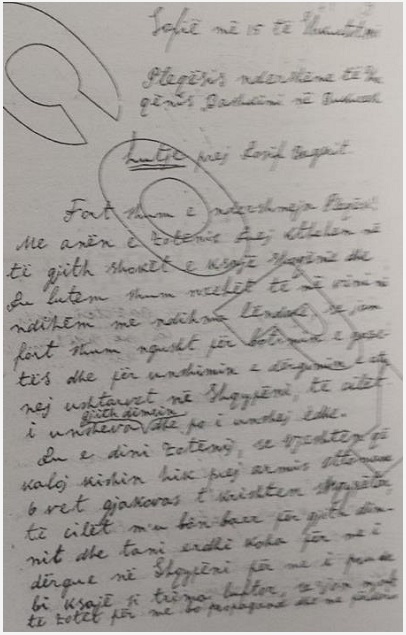 Sofië më 15 të
Plegësis ndershëme të
qënis Bashkimi në
Lutje prej Josif Bagerit
Fort shum e ndershmeja Plegësi!
Me anën e Zotënis Suej këthehem në
të gjith shokët e ksajë shoqënië dhe
Ju lutem shum nxehët të më vini në
ndihëm me ndihma lëndore, se jam
fort shum ngusht për botimin e gaze-
tës dhe për unshimin e dërgimin e aty
nej ushtarvet në Shqypëni, të cilët
gjith dimnin
i unsheva dhe po i unshej edhe.
Ju e dini Zotëni, se vjeshtën që
kaloj kishin hik prej armiis ottomane
6 vet gjakovas t krishtem shqypëtar,
të cilët m'u bën baer për gjith dim-
nit dhe tani erdhi koha për me i
dërgue në Shqypëni për me i prue
bi ksajë si trima luftor, se jan
te zotët për me bo propagandë dhe me